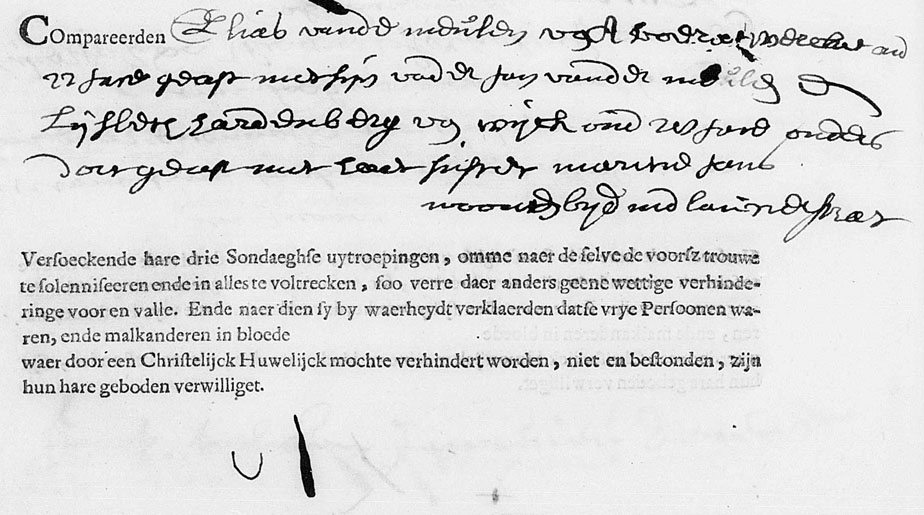 COmpareerden Elias vande meulen vgt
22 Jare geast met sijn vader Jan vander meulen en
Lijsbeth hardenberg van wijck oud 28 Jare ouders
doot geast met haer suster marritie Jans
Versoeckende hare drie Sondaeghse uytroepingen, omme naer de selve de voorsz trouwe
te solenniseeren ende in alles te voltrecken, soo verre daer anders geene wettige verhinde-
ringe voor en valle. Ende naer dien sy by waerheydt verklaerden datse vrye Persoonen wa-
ren, ende malkanderen in bloede
waer door een Christelijck Huwelijck mochte verhindert worden, niet en bestonden, zijn
hun hare geboden verwilliget.